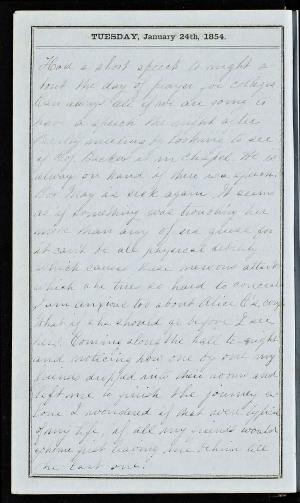 TUESDAY, January 24th, 1854.
Had a short speech to night a
bout the day of prayer for colleges
Can always tell if we are some to
have a speech the night after
Faculty meeting by looking to see
if is in chapel He is
always on hand if there is a speech.
May is sick again, It seems
as if something was troubling her
more than any of us guess for
it can't be all physical debility
which causes these nervous attacks
which she tries so hard to conceal
I am anxious too about Alice
that if she should go before I see
her. Coming along the hall to-night
and noticing how one by one my
friends dropped into their rooms and
left me to finish the journey a-
lone I wondered if that were typical
of my life, if all my friends would
go home first leaving me behind till
the last one!